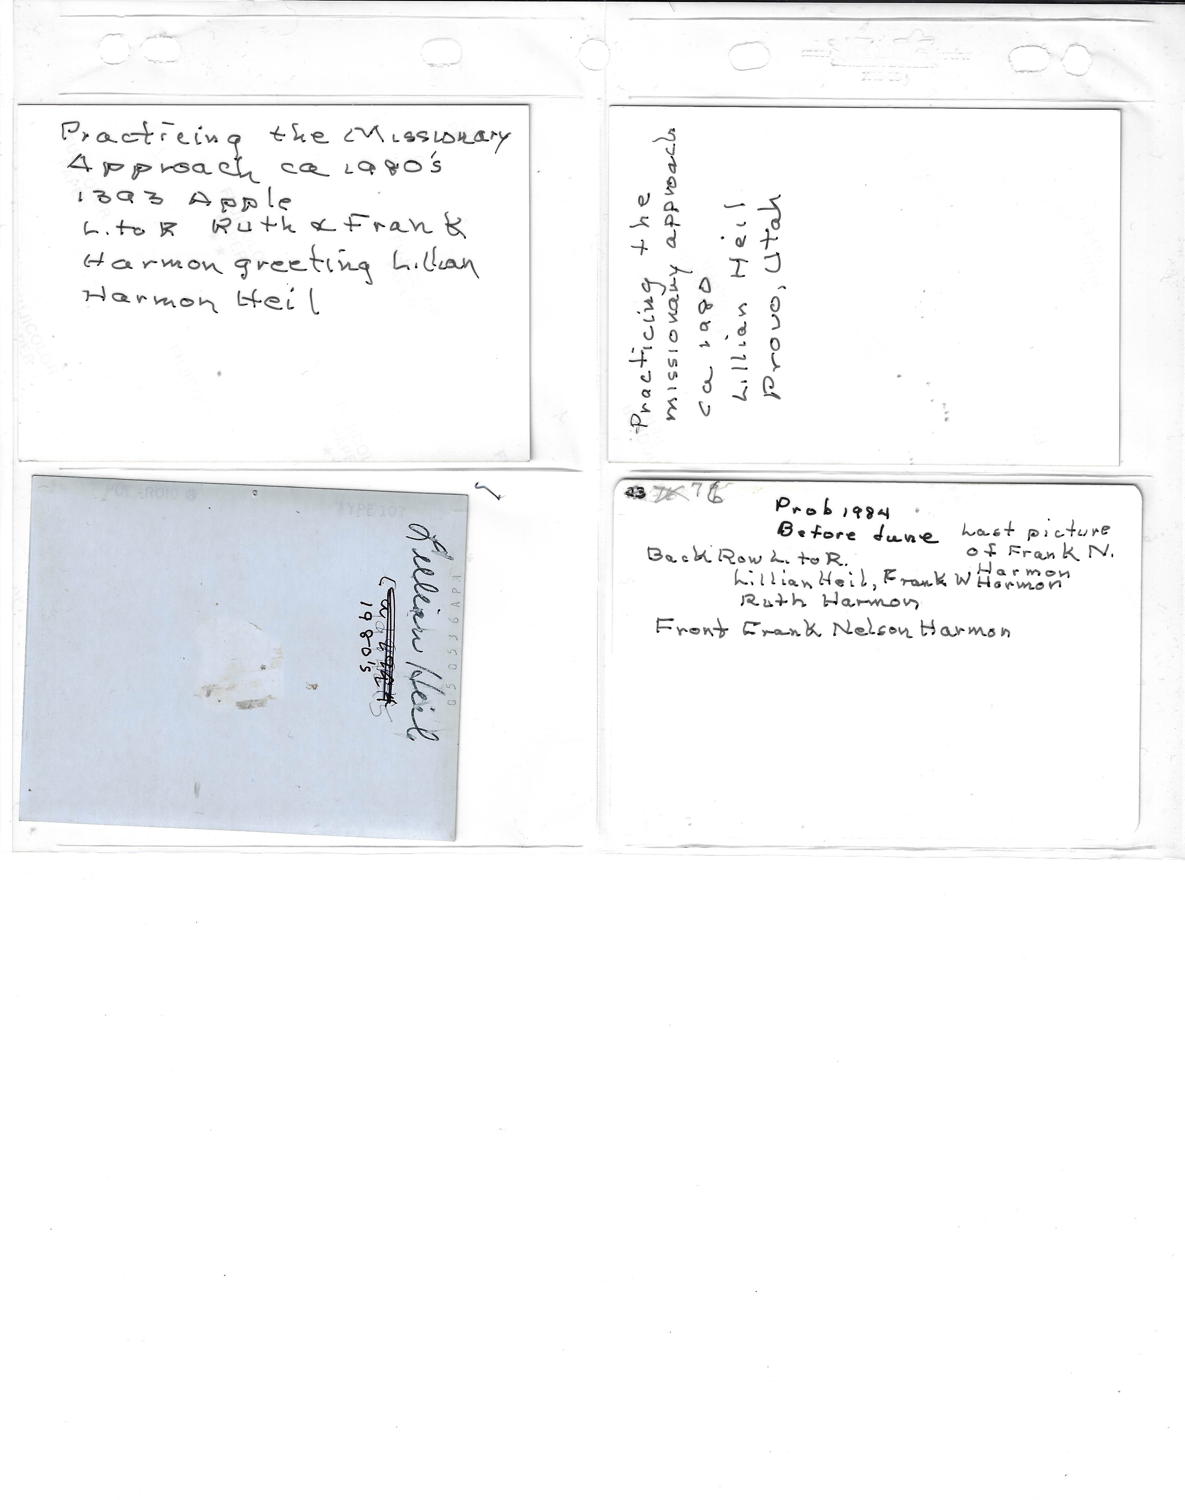 Practicing the Missionary
Approach ca 1980's
1393 Apple
L. to R Ruth & Frank
Harmon greeting Lillian
Harmon Heil
Practicing the
missionary approach
ca 1980
Lillian Heil
Provo, Utah
POLAROID ®
TYPE 107
Lillian Heil
1980's
23 76
Prob 1984
Before June
Last picture
of Frank N.
Harmon
Back Row L. to R.
Lillian Heil, Frank W Harmon
Ruth Harmon
Front Frank Nelson Harmon